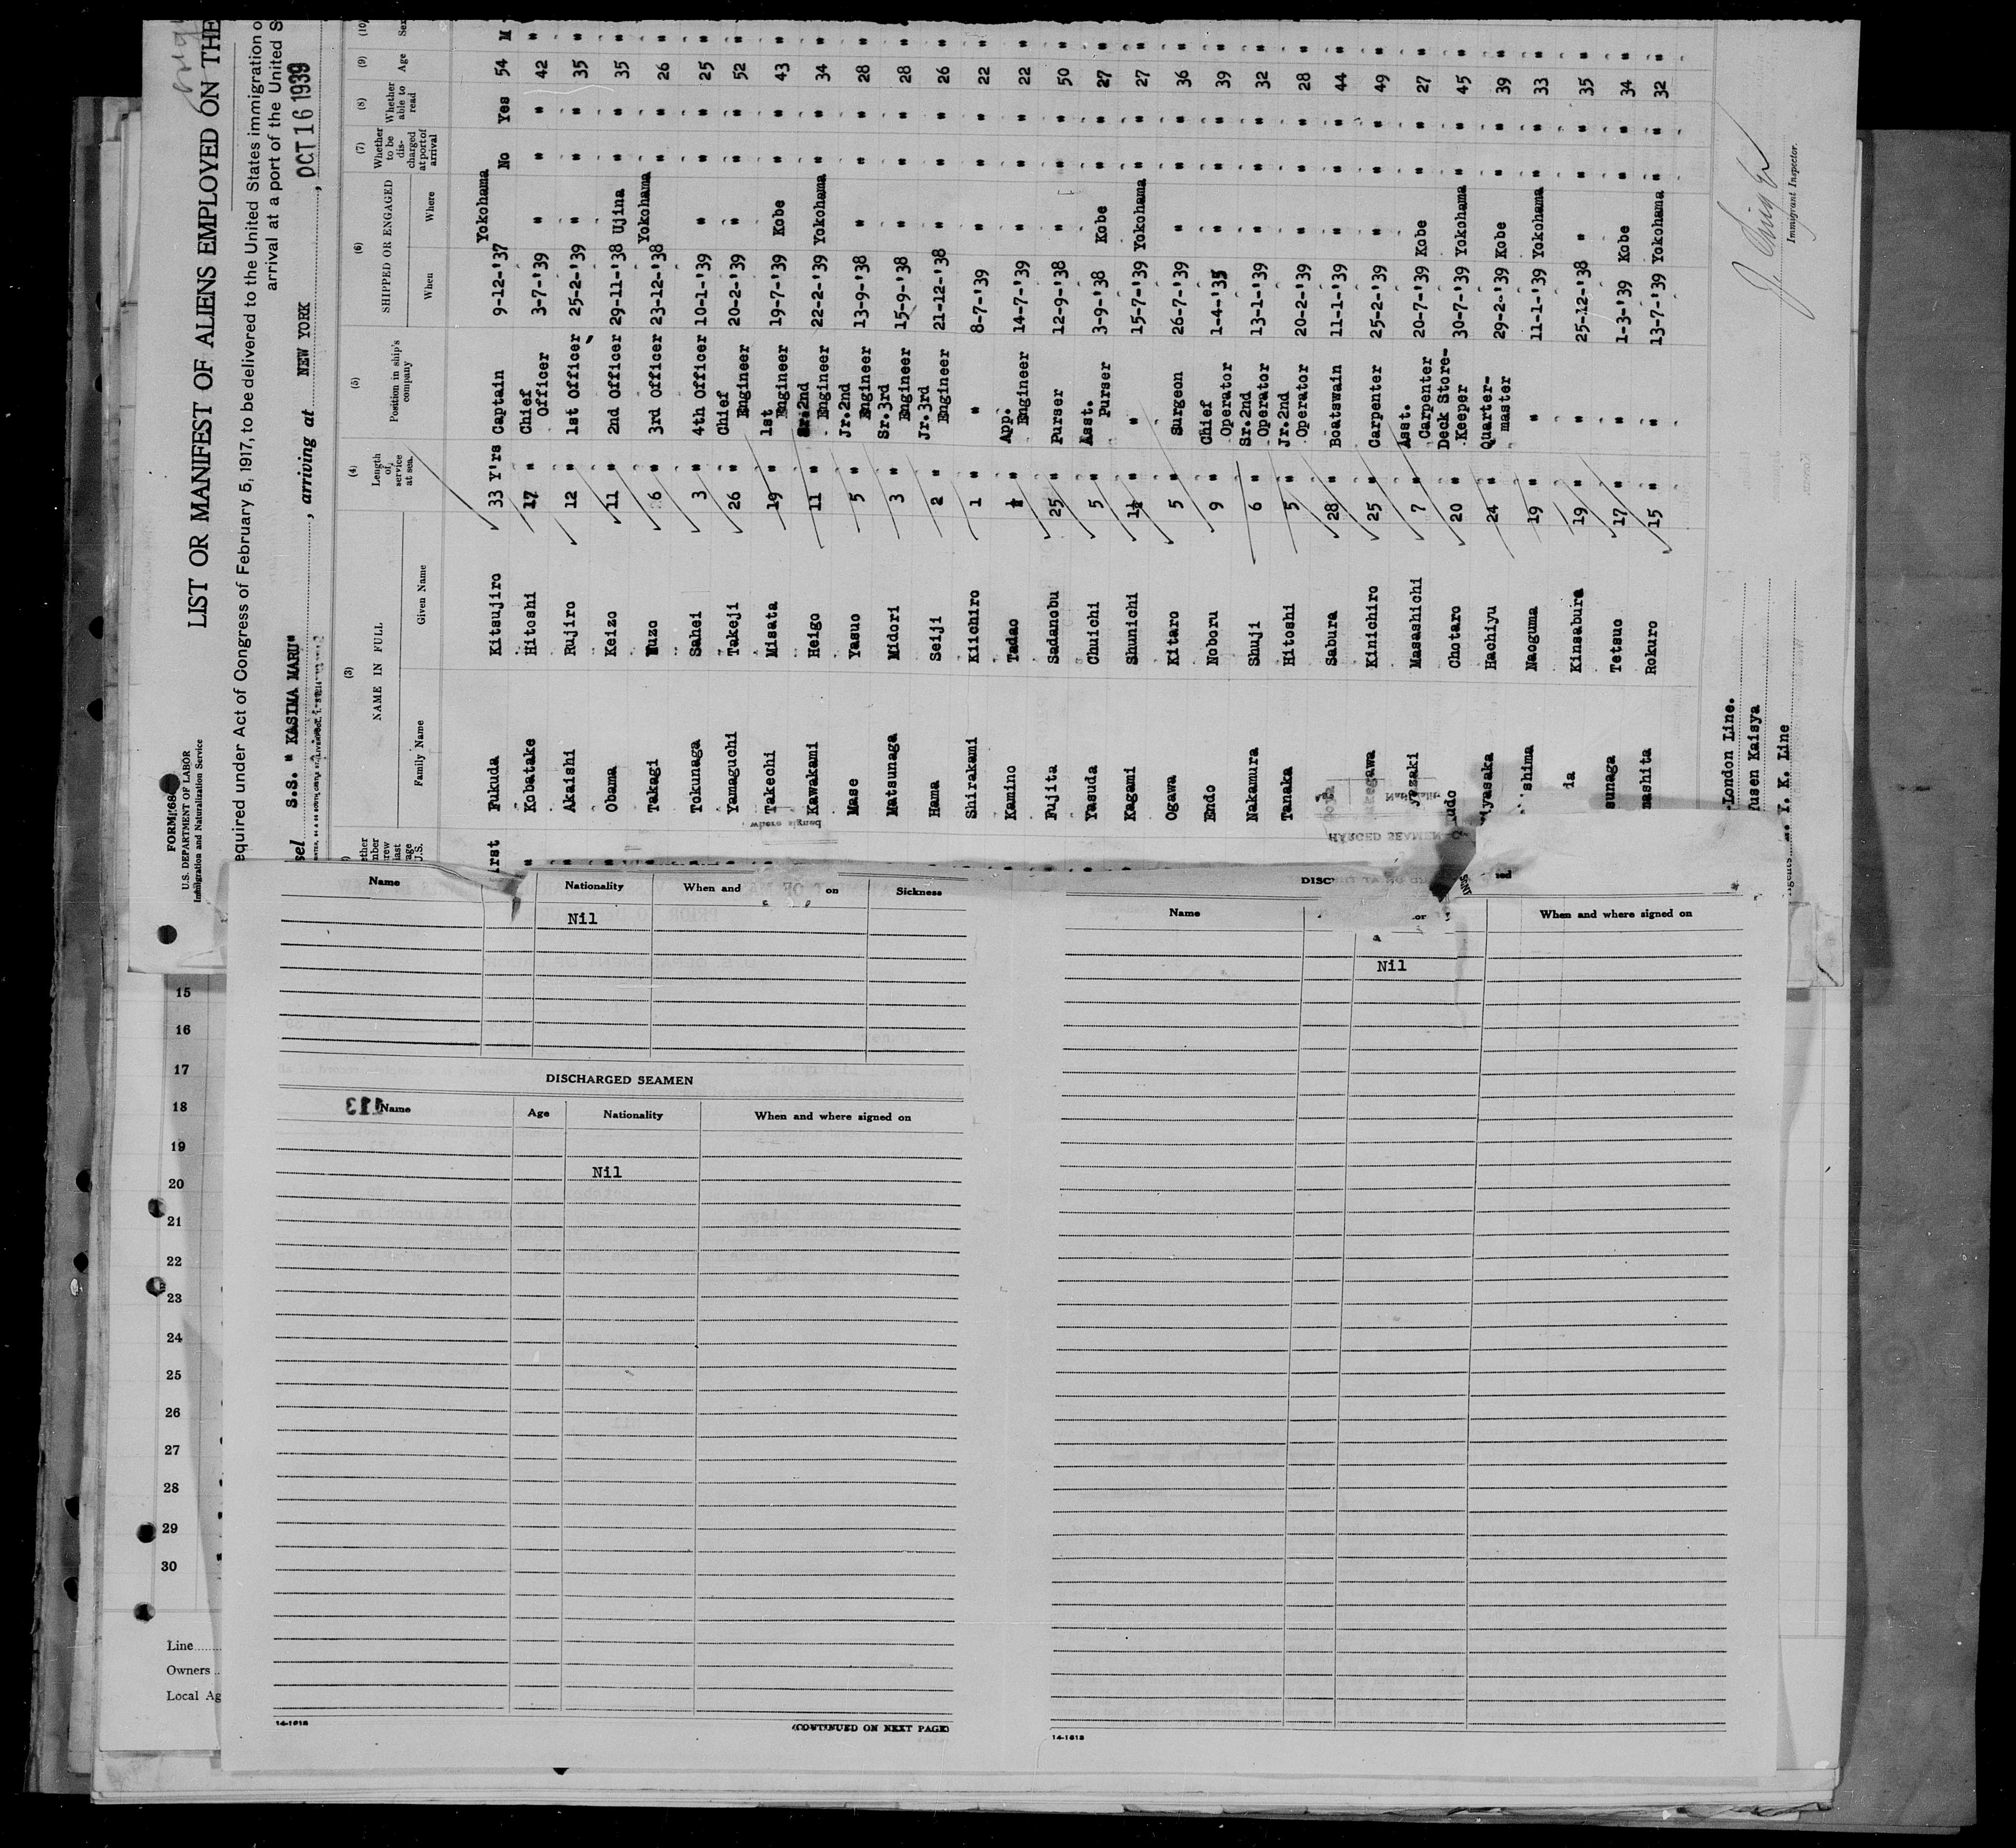 FORM 680
U.S. DEPARTMENT OF LABOR
Immigration and Naturalization Service
LIST OR MANIFEST OF ALIENS EMPLOYED ON THE
equired under Act of Congress of February 5, 1917, to be delivered to the United States immigration o
arrival at a port of the United S
sel S.S. " KASIMA MARU" , arriving at NEW YORK , OCT 16 1939
(3) (4) (5) (6) (7) (8) (9) (10)
NAME IN FULL Length of service at sea. Position in ship's company SHIPPED OR ENGAGED Whether to be discharged at port of arrival Whether able to read Age Sex
Family Name Given Name When Where
irst Fukuda Kitsujiro 33 Y'rs Captain 9-12-'37 Yokohama No Yes 54 M
" Kobatake Hitoshi 17 " Chief Officer 3-7-'39 " " " 42 "
Akaishi Rujiro 12 " 1st Officer 25-2-'39 " " " 35 "
Obama Keizo 11 " 2nd Officer 29-11-'38 Ujina " " 35 "
Takagi Yuzo 6 " 3rd Officer 23-12-'38 Yokohama " " 26 "
Tokunaga Sahei 3 " 4th Officer 10-1-'39 " " " 25 "
Yamaguchi Takeji 26 " Chief Engineer 20-2-'39 " " " 52 "
Takechi Misata 19 " 1st Engineer 19-7-'39 Kobe " " 43 "
Kawakami Heigo 11 " Sr.2nd Engineer 22-2-'39 Yokohama " " 34 "
Mase Yasuo 5 " Jr.2nd Engineer 13-9-'38 " " " 28 "
Matsunaga Midori 3 " Sr.3rd Engineer 15-9-'38 " " " 28 "
Hama Seiji 2 " Jr.3rd Engineer 21-12-'38 " " " 26 "
Shirakami Kiichiro 1 " " 8-7-'39 " " " 22 "
Kamino Tadao " App. Engineer 14-7-'39 " " " 22 "
Fujita Sadanobu 25 " Purser 12-9-'38 " " " 50 "
Yasuda Chuichi 5 " Asst. Purser 3-9-'38 Kobe " " 27 "
Kagami Shunichi 1½ " " 15-7-'39 Yokohama " " 27 "
Ogawa Kitaro 5 " Surgeon 26-7-'39 " " " 36 "
Endo Noboru 9 " Chief Operator 1-4-'35 " " " 39 "
Nakamura Shuji 6 " Sr.2nd Operator 13-1-'39 " " " 32 "
Tanaka Hitoshi 5 " Jr.2nd Operator 20-2-'39 " " " 28 "
Sabura 28 " Boatswain 11-1-'39 " " " 44 "
akegawa Kinichiro 25 " Carpenter 25-2-'39 " " " 49 "
yazaki Masashichi 7 " Asst. Carpenter 20-7-'39 Kobe " " 27 "
udo Chotaro 20 " Deck Store-Keeper 30-7-'39 Yokohama " " 45 "
iyasaka Hachiyu 24 " Quarter-master 29-2-'39 Kobe " " 39 "
shima Naoguma 19 " " 11-1-'39 Yokohama " " 33 "
da Kinsabura 19 " " 25-12-'38 " " " 35 "
sunaga Tetsuo 17 " " 1-3-'39 Kobe " " 34 "
mashita Rokuro 15 " " 13-7-'39 Yokohama " " 32 "
London Line.
usen Kaisya
Y. K. Line
Immigrant Inspector.
Name Nationality When and on Sickness
Nil
DISCHARGED SEAMEN
113
Name Age Nationality When and where signed on
Nil
14-1618 (CONTINUED ON NEXT PAGE)
DISC
Name When and where signed on
Nil
14-1618
15
16
17
18
19
20
21
22
23
24
25
26
27
28
29
30
Line
Owners
Local Ag